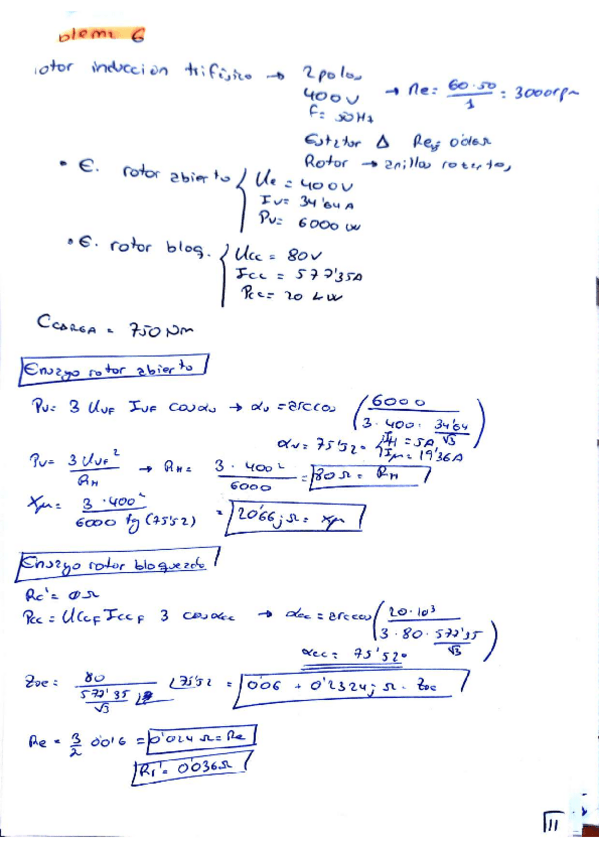 blema 6
otor inducción trifásico → 2 polos
400 V → ne = 60·50/1 = 3000 rpm
f = 50Hz
Estator Δ
Rotor → anillos
• E. rotor abierto { Ue = 400V
Iv = 34'64 A
Pv = 6000 W
• E. rotor bloq. { Ucc = 80V
Icc = 577'35A
Pcc = 20 kW
CCARGA = 750 Nm
Ensayo rotor abierto
Pv = 3 Uvf Ivf cosαv → αv = arccos (6000 / 3·400·34'64/√3)
αv = 75'52º IH = 5A
Iμ = 19'36A
Pv = 3Uvf² / RH → RH = 3·400² / 6000 = 80Ω = RH
Xμ = 3·400² / 6000 tg(75'52) = 20'66j Ω = Xμ
Ensayo rotor bloqueado
Rc' = 0Ω
Pcc = Uccf Iccf 3 cosαcc → αcc = arccos (20·10³ / 3·80·577'35/√3)
αcc = 75'52º
Zcc = 80 / 577'35/√3 ∠75'52 = 0'06 + 0'2324j Ω = Zcc
Re = 3/2 0'016 = 0'024Ω = Re
Rr' = 0'036Ω
11